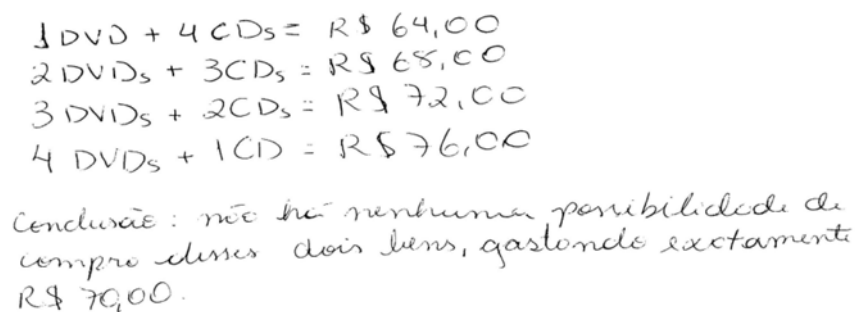 1 DVD + 4 CDs = R$ 64,00
2 DVDs + 3CDs = R$ 68,00
3 DVDs + 2CDs = R$ 72,00
4 DVDs + 1CD = R$ 76,00
Conclusão: não há nenhuma possibilidade de
compra desses dois bens, gastando exatamente
R$ 70,00.